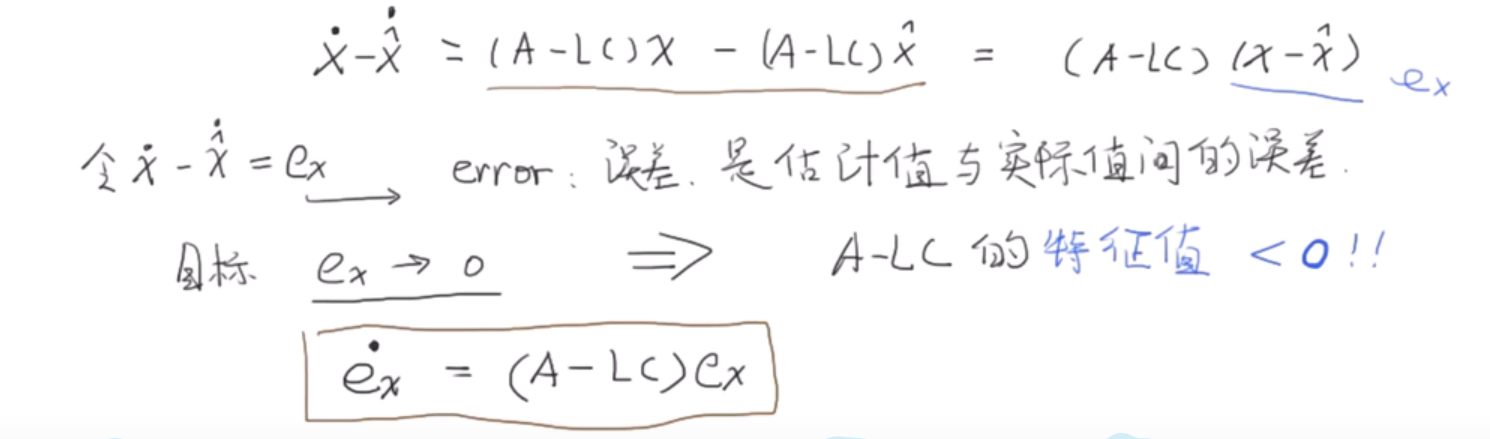 ẋ - x̂̇ = (A-LC)x - (A-LC)x̂ = (A-LC)(x-x̂) eₓ
令 ẋ - x̂̇ = eₓ → error: 误差. 是估计值与实际值间的误差.
目标 eₓ → 0 ⇒ A-LC 的特征值 < 0!!
ėₓ = (A-LC)eₓ